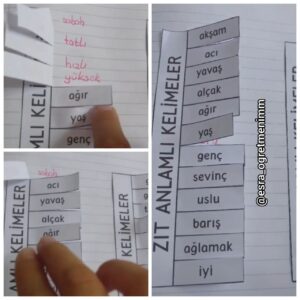 sabah
tatlı
hızlı
yüksek
ağır
yaş
genç
AMLI KELİMELER
sabah
acı
yavaş
alçak
ağır
AMLI KELİMELER
ZIT ANLAMLI KELİMELER
akşam
acı
yavaş
alçak
ağır
yaş
genç
sevinç
uslu
barış
ağlamak
iyi
@esra_ogretmenimm